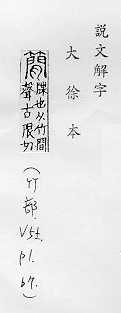 説文解字
大徐本
簡
牒也从竹閒
聲古限切
(竹部. V5上. p1. b7.)